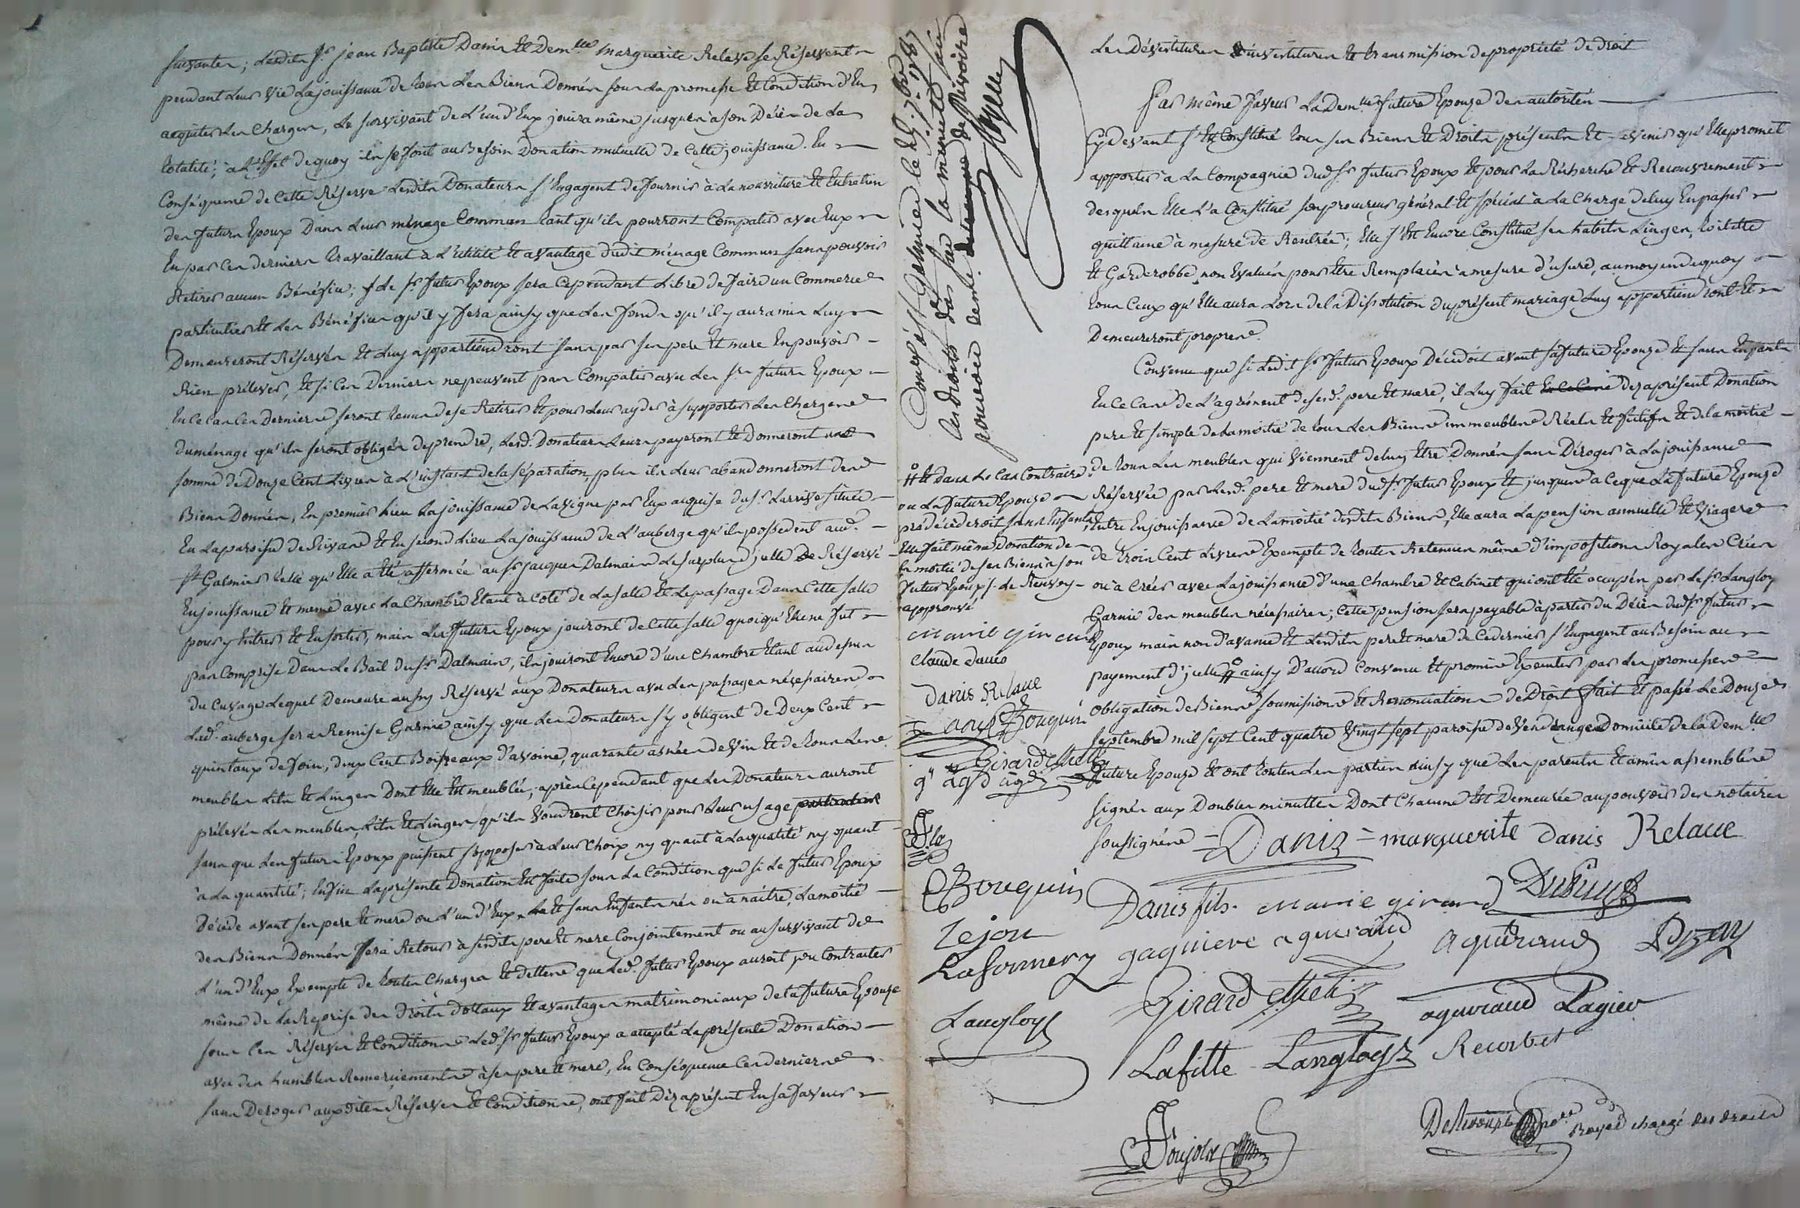 suivantes; Lesdits Sr. jean Baptiste Danis Et Demlle marguerite Relave se Réservent
pendant Leur vie La jouissance de tous Les Biens Donnés sous La promesse Et Condition d'En
acquiter Les Charges, Le survivant de L'un d'Eux jouira même jusques a son Décès de La
totalité; a L'Effet de quoy ils se font au Besoin Donation mutuelle de Cette jouissance. En
Conséquence de Cette Réserve Lesdits Donateurs s'Engagent de fournir à La nourriture Et Entretien
des futurs Epoux Dans Leur ménage Commun tant qu'ils pourront Compatir avec Eux
En par Ces derniers travaillant à L'utilité Et avantage dudit ménage Commun sans pouvoir
Retirer aucun Bénéfice; Le sr futur Epoux sera Cependant Libre de faire un Commerce
particulier Et Les Bénéfices qu'il y fera ainsy que Les fonds qu'il y aura mis Luy
Demeureront Réservés Et Luy appartiendront sans que ses pere Et mere En puissent
Rien prélever, Et si Ces Derniers ne peuvent pas Compatir avec Les srs futurs Epoux
En Ce Cas Ces Derniers seront tenus de se Retirer Et pour Leur ayder à supporter Les Charges
du ménage qu'ils seront obligés de prendre, Lesd. Donateurs Leur payeront Et Donneront une
somme de Douze Cent Livres à L'instant de la séparation, plus ils Leur abandonneront des
Biens Donnés, En premier Lieu La jouissance de La vigne par Eux acquise du sr Larrive située
En La paroisse de Rivas Et En second Lieu La jouissance de L'auberge qu'ils possedent aud.
St Galmier telle qu'Elle a Eté affermée au sr jacques Dalmais Le surplus d'jcelle De Réserve
En jouissance Et même avec La Chambre Etant à Coté de La salle Et Le passage Dans Cette salle
pour y Entrer Et En sortir, mais Les futurs Epoux jouiront de Cette salle quoiqu'Elle ne fut
pas Comprise Dans Le Bail du sr Dalmais, ils jouiront Encore d'une Chambre Etant au dessus
du Cuvage Lequel Demeure aussy Réservé aux Donateurs avec Les passages nécessaires
Lad. auberge sera Remise Garnie ainsy que Les Donateurs s'y obligent de Deux Cent
quintaux de foin, deux Cent Boisseaux d'avoine, quarante asnées de vin Et de tous Les
meubles Lits Et Linges dont Elle Est meublée; après Cependant que Les Donateurs auront
prélevés Les meubles Lits Et Linges qu'ils voudront Choisir pour Leur usage particuliers
sans que Les futurs Epoux puissent s'opposer à Leur Choix ny quant à La qualité ny quant
à La quantité; Enfin La présente Donation Est faite sous La Condition que si Le futur Epoux
Décède avant ses pere Et mere ou L'un d'Eux Et sans Enfants nés ou à naitre, La moitié
des Biens Donnés fera Retour à sesdits pere Et mere Conjointement ou au survivant de
L'un d'Eux Exempte de toutes Charges Et dettes que Led. futur Epoux auroit pu Contracter
même de La Reprise des Droits dottaux Et avantages matrimoniaux de La future Epouze
sous Ces Réserves Et Conditions Led. sr futur Epoux a accepté La présente Donation
avec des humbles Remerciements à ses pere Et mere, En Conséquence Ces derniers
sans Deroger auxdites Réserves Et Conditions, ont fait Dez a présent En sa faveur
Controllé à St Galmier le 25. 7bre 1787
Les droits dus sur la minute par
pourvoir de me de Rivoire
Les Dévestitures investitures Et transmission de propriété de droit
Par même faveur La Demlle future Epouze des autorités
Cydevant s'Est Constitué tous ses Biens Et Droits présents Et avenir qu'Elle promet
apporter à La Compagnie dud. sr futur Epoux Et pour La Récherche Et Recouvrement
desquels Elle L'a Constitué son procureur général Et spécial à La Charge de Luy En passer
quittance à mesure de Rentrée; Elle s'Est Encore Constitué ses habits Linges, toilette
Et Garderobbe non Evalués pour Etre Remplacés a mesure d'usure, au moyen de quoy
tous Ceux qu'Elle aura Lors de la Dissolution du présent mariage Luy appartiendront Et
Demeureront propres
Convenu que si Ledit sr futur Epoux Décédoit avant sa future Epouze Et sans Enfants
En Ce Cas de L'agrément de sesd. pere Et mere, il Luy fait dez a présent Donation
pure Et simple de La moitié de tous Les Biens immeubles Réels Et fictifs Et de La moitié
de tous Les meubles qui viennent de luy Etre Donnés sans Déroger à La jouissance
Réservée par Lesd. pere Et mere dud. sr futur Epoux Et jusques à Ceque La future Epouze
Entre En jouissance de La moitié desdits Biens, Elle aura La pension annuelle Et Viagere
de trois Cent Livres Exempte de toutes Retenues même d'impositions Royales Créés
ou à Créer avec La jouissance d'une Chambre Et Cabinet qui ont Eté occupés par Le sr Langloy
Garnis des meubles nécessaires; Cette pension sera payable à partir du Décès dud. sr futur
Epoux mais non d'avance Et Lesdits pere Et mere de Ce dernier s'Engagent au Besoin au
payement d'jcelle # ainsy D'accord Convenu Et promis Executer par Les promesses
obligation de Biens soumissions Et Renonciations de Droit fait Et passé Le Douze
septembre mil sept Cent quatre vingt sept paroisse de Vendranges Domicile de la Demlle
future Epouze Et ont toutes Les parties ainsy que Les parents Et amis assemblés
signé aux Doubles minuttes Dont Chacune Est Demeurée au pouvoir des notaires
soussignés = Danis = marguerite danis Relave
# Et dans Le Cas Contraire
ou La future Epouze
prédécederoit sans Enfants
Elle fait même Donation de
La moitié de ses Biens à son
futur Epoux
approuvé
marie girard
claude danis
danis Relave
danis Bouquin
Girard
Bouquin
Danis fils. marie girard Dubuy
Lejon
gagniere aguiraud aguiraud
Lafonnery
Girard
aguiraud Pagier
Langloys
Lafitte Langloys Recorbet
Ponjolz
Royal chargé des droits